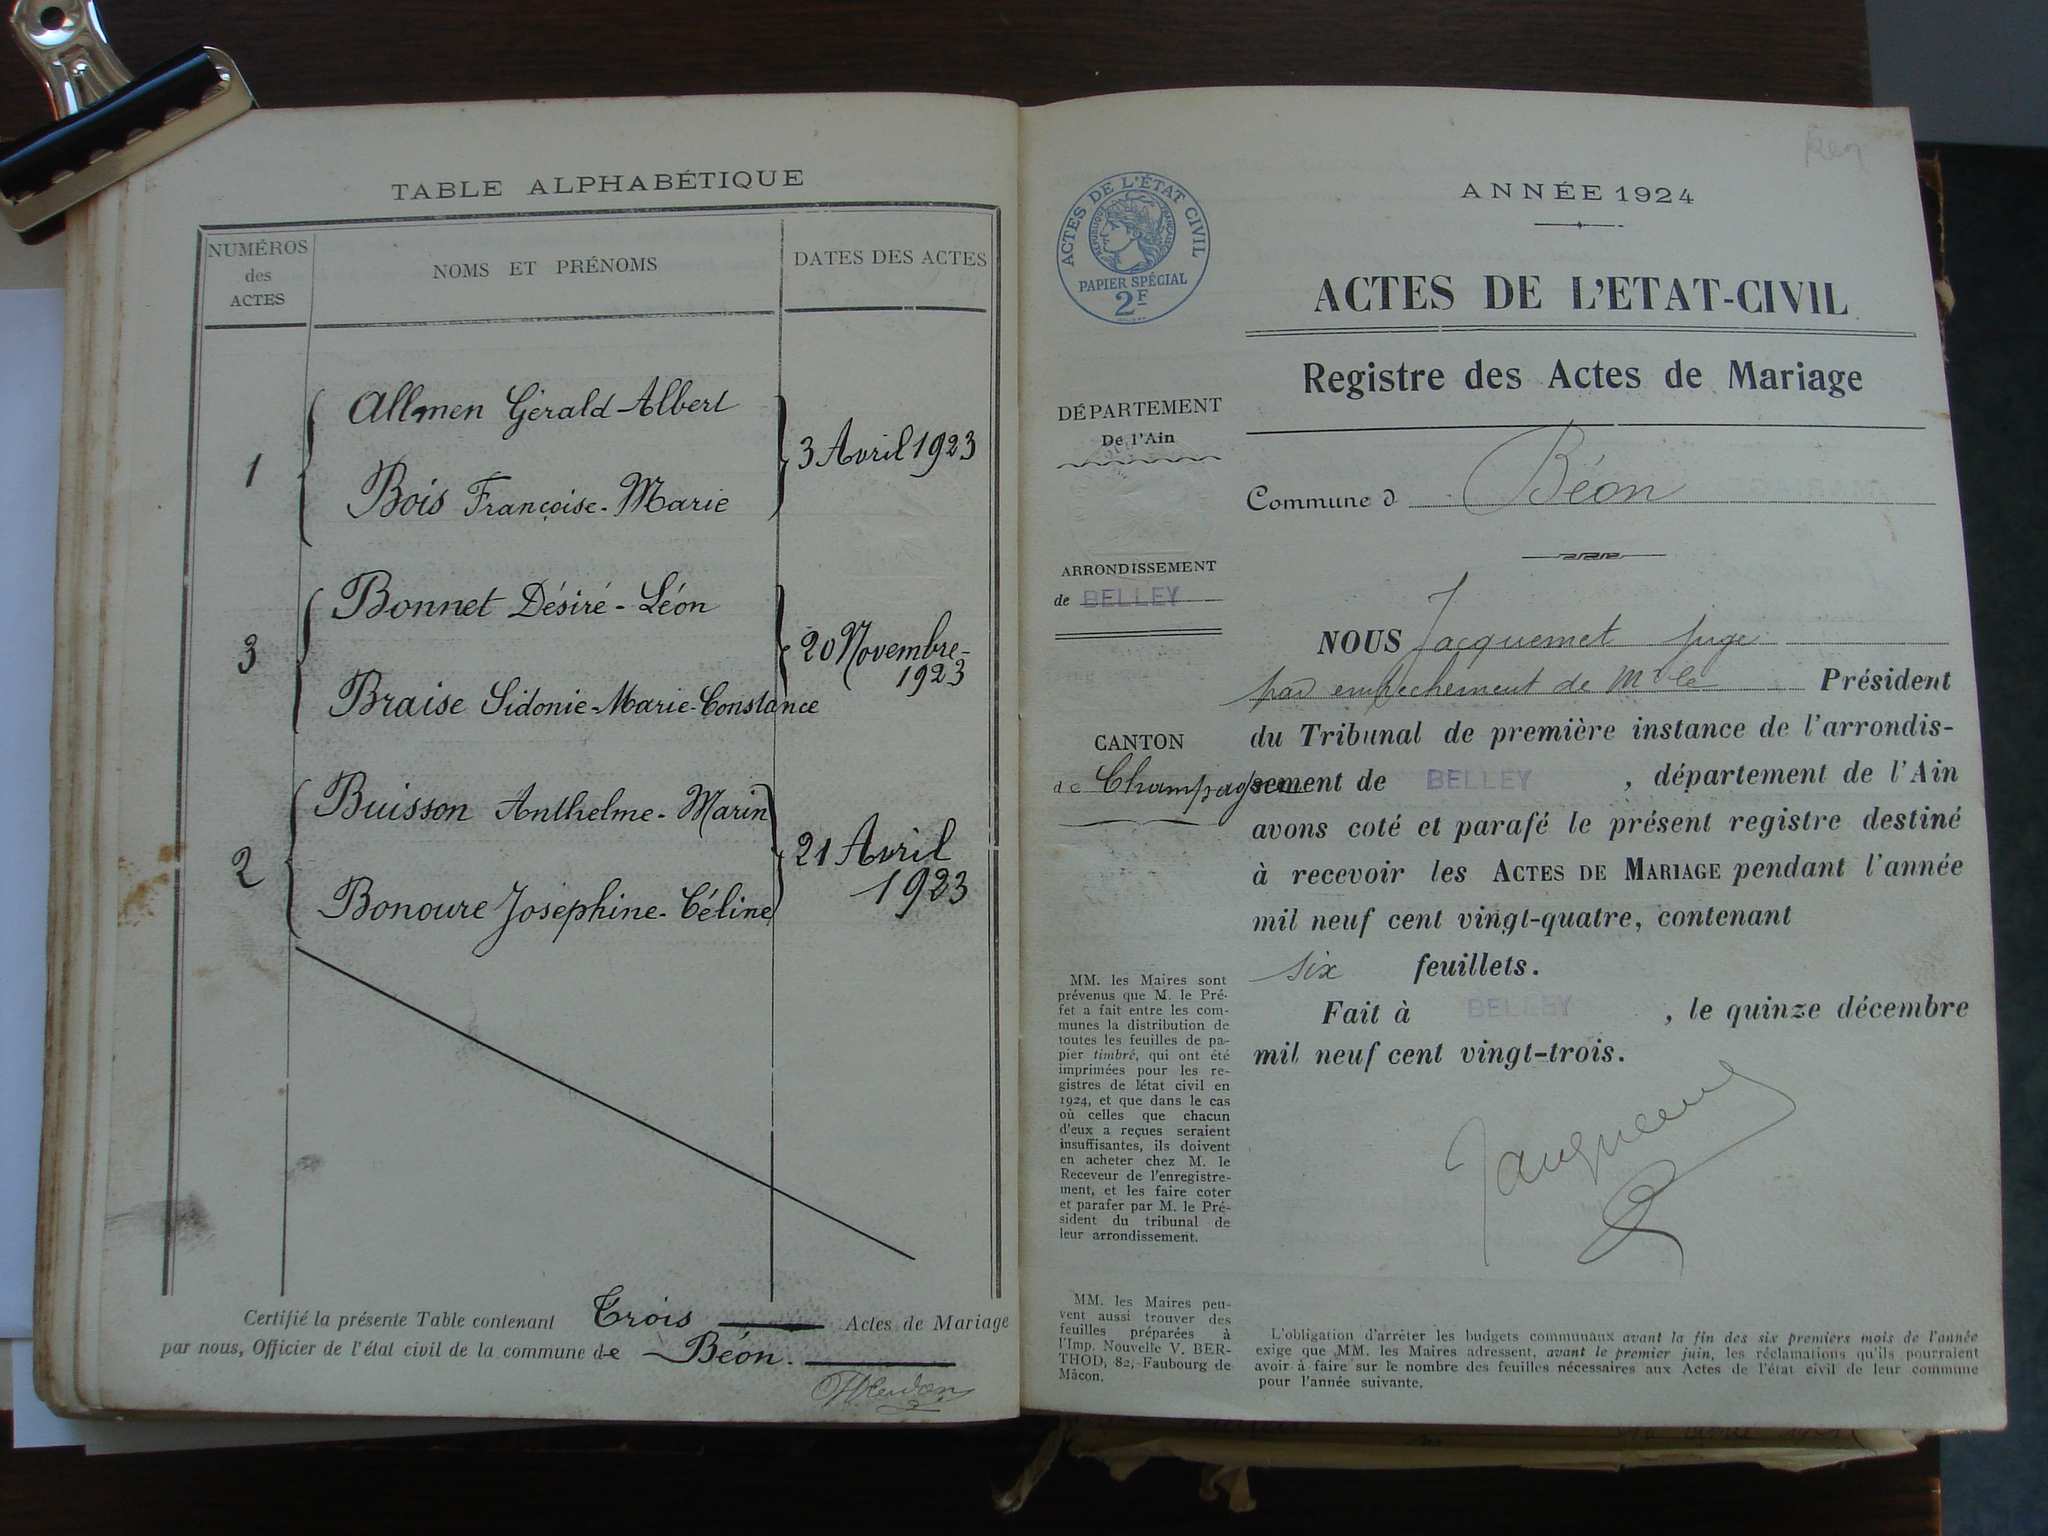 TABLE ALPHABÉTIQUE
NUMÉROS
des
ACTES
NOMS ET PRÉNOMS
DATES DES ACTES
1
Allmen Gérald-Albert
Bois Françoise-Marie
3 Avril 1923
3
Bonnet Désiré-Léon
Braise Sidonie-Marie-Constance
20 Novembre-
1923
2
Buisson Anthelme-Marin
Bonoure Joséphine-Céline
21 Avril
1923
Certifié la présente Table contenant Trois Actes de Mariage
par nous, Officier de l'état civil de la commune de Béon.
ANNÉE 1924
ACTES DE L'ÉTAT CIVIL
RÉPUBLIQUE FRANÇAISE
PAPIER SPÉCIAL
2F
ACTES DE L'ETAT-CIVIL
Registre des Actes de Mariage
DÉPARTEMENT
De l'Ain
Commune d Béon
ARRONDISSEMENT
de BELLEY
CANTON
de Champagne
NOUS Jacquemet juge
par empêchement de Mr le Président
du Tribunal de première instance de l'arrondis-
sement de BELLEY, département de l'Ain
avons coté et parafé le présent registre destiné
à recevoir les ACTES DE MARIAGE pendant l'année
mil neuf cent vingt-quatre, contenant
six feuillets.
Fait à BELLEY, le quinze décembre
mil neuf cent vingt-trois.
MM. les Maires sont
prévenus que M. le Pré-
fet a fait entre les com-
munes la distribution de
toutes les feuilles de pa-
pier timbré, qui ont été
imprimées pour les re-
gistres de létat civil en
1924, et que dans le cas
où celles que chacun
d'eux a reçues seraient
insuffisantes, ils doivent
en acheter chez M. le
Receveur de l'enregistre-
ment, et les faire coter
et parafer par M. le Pré-
sident du tribunal de
leur arrondissement.
MM. les Maires peu-
vent aussi trouver des
feuilles préparées à
l'Imp. Nouvelle V. BER-
THOD, 82, Faubourg de
Mâcon.
L'obligation d'arrêter les budgets communaux avant la fin des six premiers mois de l'année
exige que MM. les Maires adressent, avant le premier juin, les réclamations qu'ils pourraient
avoir à faire sur le nombre des feuilles nécessaires aux Actes de l'état civil de leur commune
pour l'année suivante.